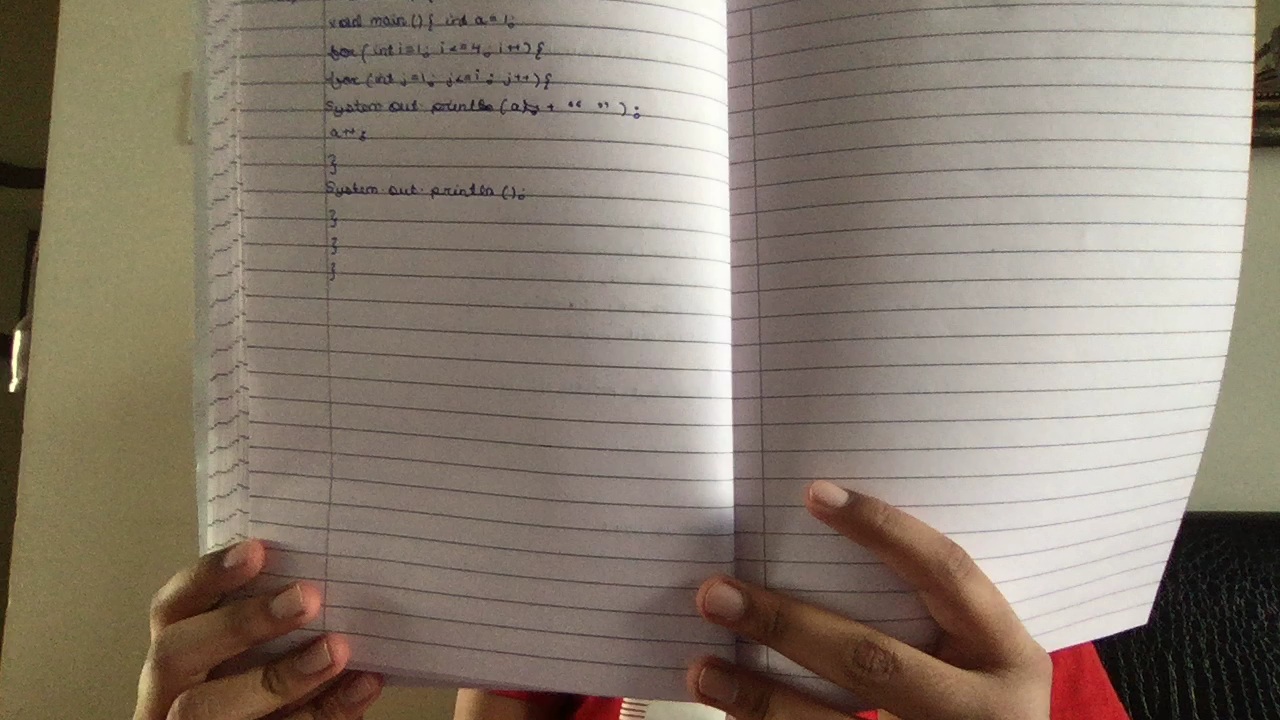 void main() { int a = 1;
for( int i=1; i<=4; i++) {
for (int j=1; j<=i; j++) {
System.out.println (a + " ");
a++;
}
System.out.println ();
}
}
}